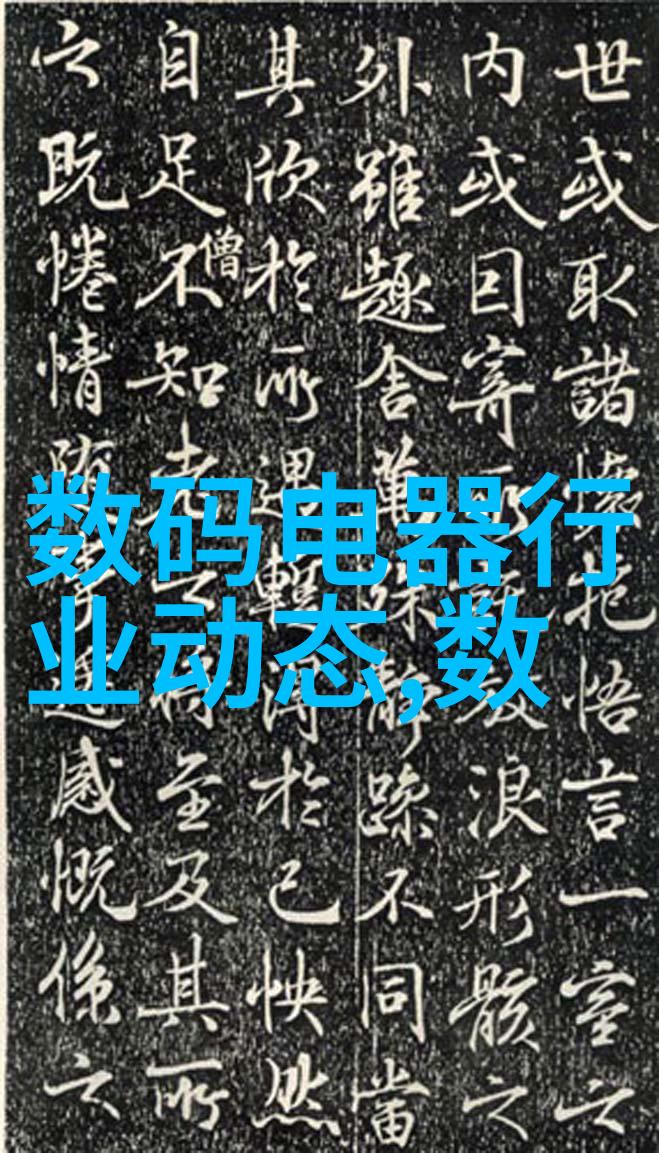 世或取諸懷抱悟言一室之
内或因寄所託放浪形骸之
外雖趣舍萬殊靜躁不同當
其欣於所遇暫得於己怏然
自足不知老之將至及其所
僧
之既惓情隨事遷感慨係之
数码电器行
业动态,数